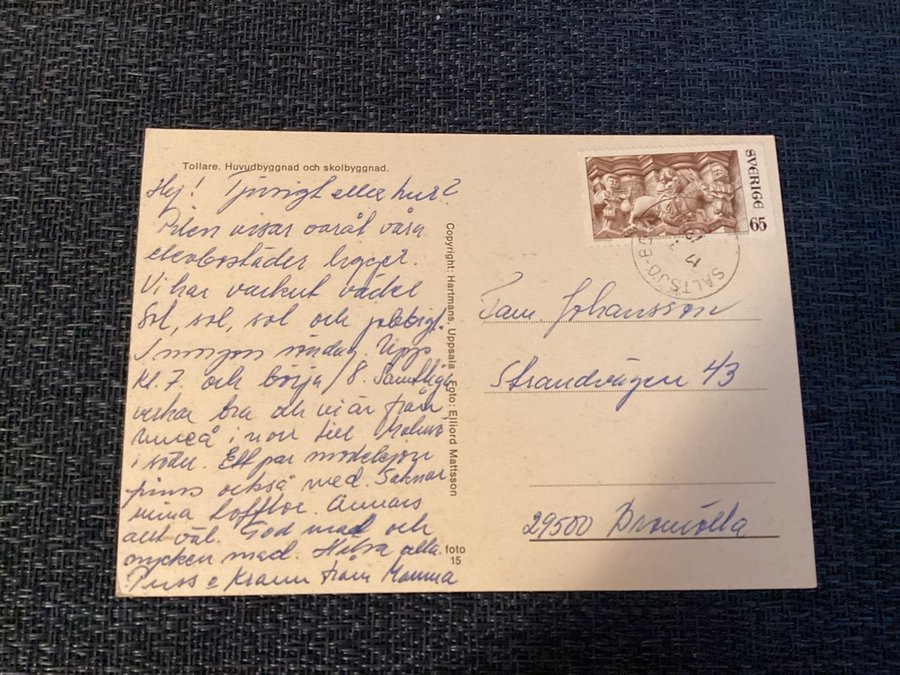 Tollare. Huvudbyggnad och skolbyggnad.
Hej! Tjusigt eller hur?
Pilen visar vart våra
elevbostäder ligger.
Vi har vackert väder
Sol, sol, sol och jobbigt.
I morgon söndag. Upp
kl. 7. och börja 8. Samtliga
verkar bra och vi är från
Umeå i norr till Malmö
i söder. Ett par
finns också med. Saknar
mina tofflor. Annars
allt väl. God mat och
mycken mat. Hälsa alla.
Puss o Kram från Mamma
Copyright: Hartmans, Uppsala Foto: Elliord Mattsson
foto
15
SVERIGE 65
SALTSJÖ-B
Fam. Johansson
Strandvägen 43
29500 Bromölla